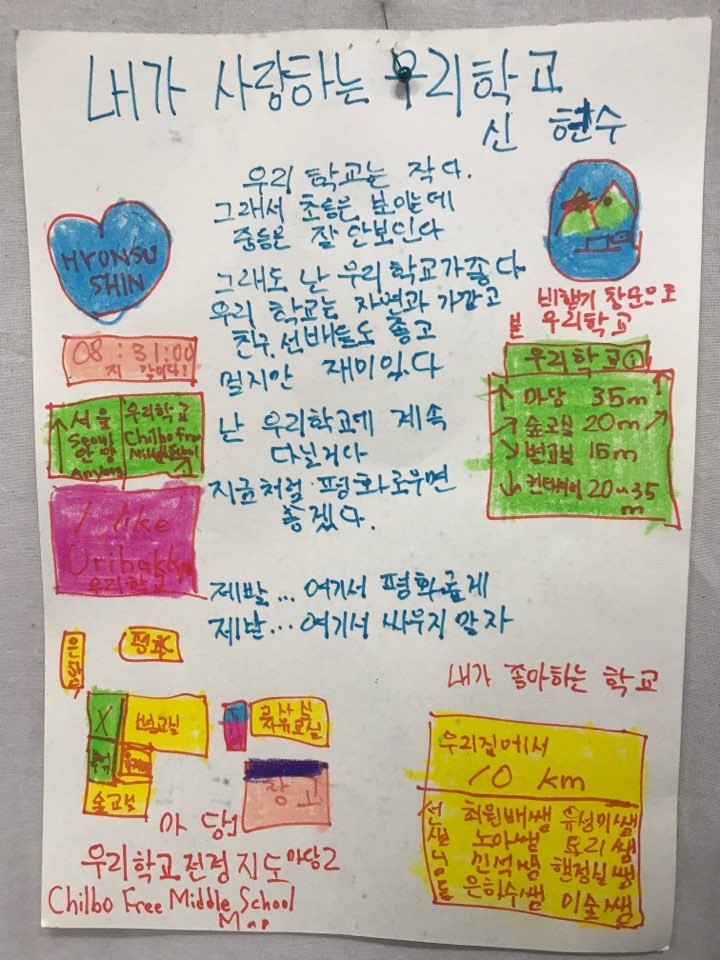 내가 사랑하는 우리학교
신 현수
우리 학교는 작다.
그래서 초등은 분야는데
중등은 잘 안보인다
그래도 난 우리학교가좋다
우리 학교는 자연과 가깝고
친구, 선배들도 좋고
멀지만 재미있다
난 우리학교에 계속
다닐거다
지금처럼 평화로우면
좋겠다.
제발... 여기서 평화롭게
제발... 여기서 싸우지 말자
HYONSU
SHIN
08:31:00
지각이다!
서울
Seoul
안양
Anyang
우리학교
Chilbo Free
Middle School
I like
Urihakkyo
우리학교
비행기 창문으로
본 우리학교
우리학교①
↑ 마당 35m ↑
↗ 숲교실 20m ↗
↘ 변교실 15m
컨테이너 20~35
m
은행
평화
X
변교실
숲교실
교사실
자유교실
창고
마당1
마당2
우리학교전경지도
Chilbo Free Middle School
Map
내가 좋아하는 학교
우리집에서
10 km
선생님들
최원배쌤 유성미쌤
노아쌤 토리쌤
민석쌤 행정실쌤
은하수쌤 미술쌤